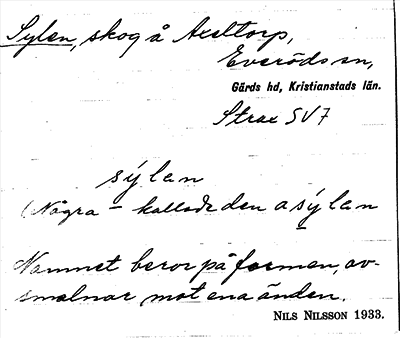 Sylen, skog å Axeltorp,
Everöds sn,
Gärds hd, Kristianstads län.
Strax SV 7
sýlan
(Några – kallade den asýlan
Namnet beror på formen, av-
smalnar mot ena änden.
NILS NILSSON 1933.